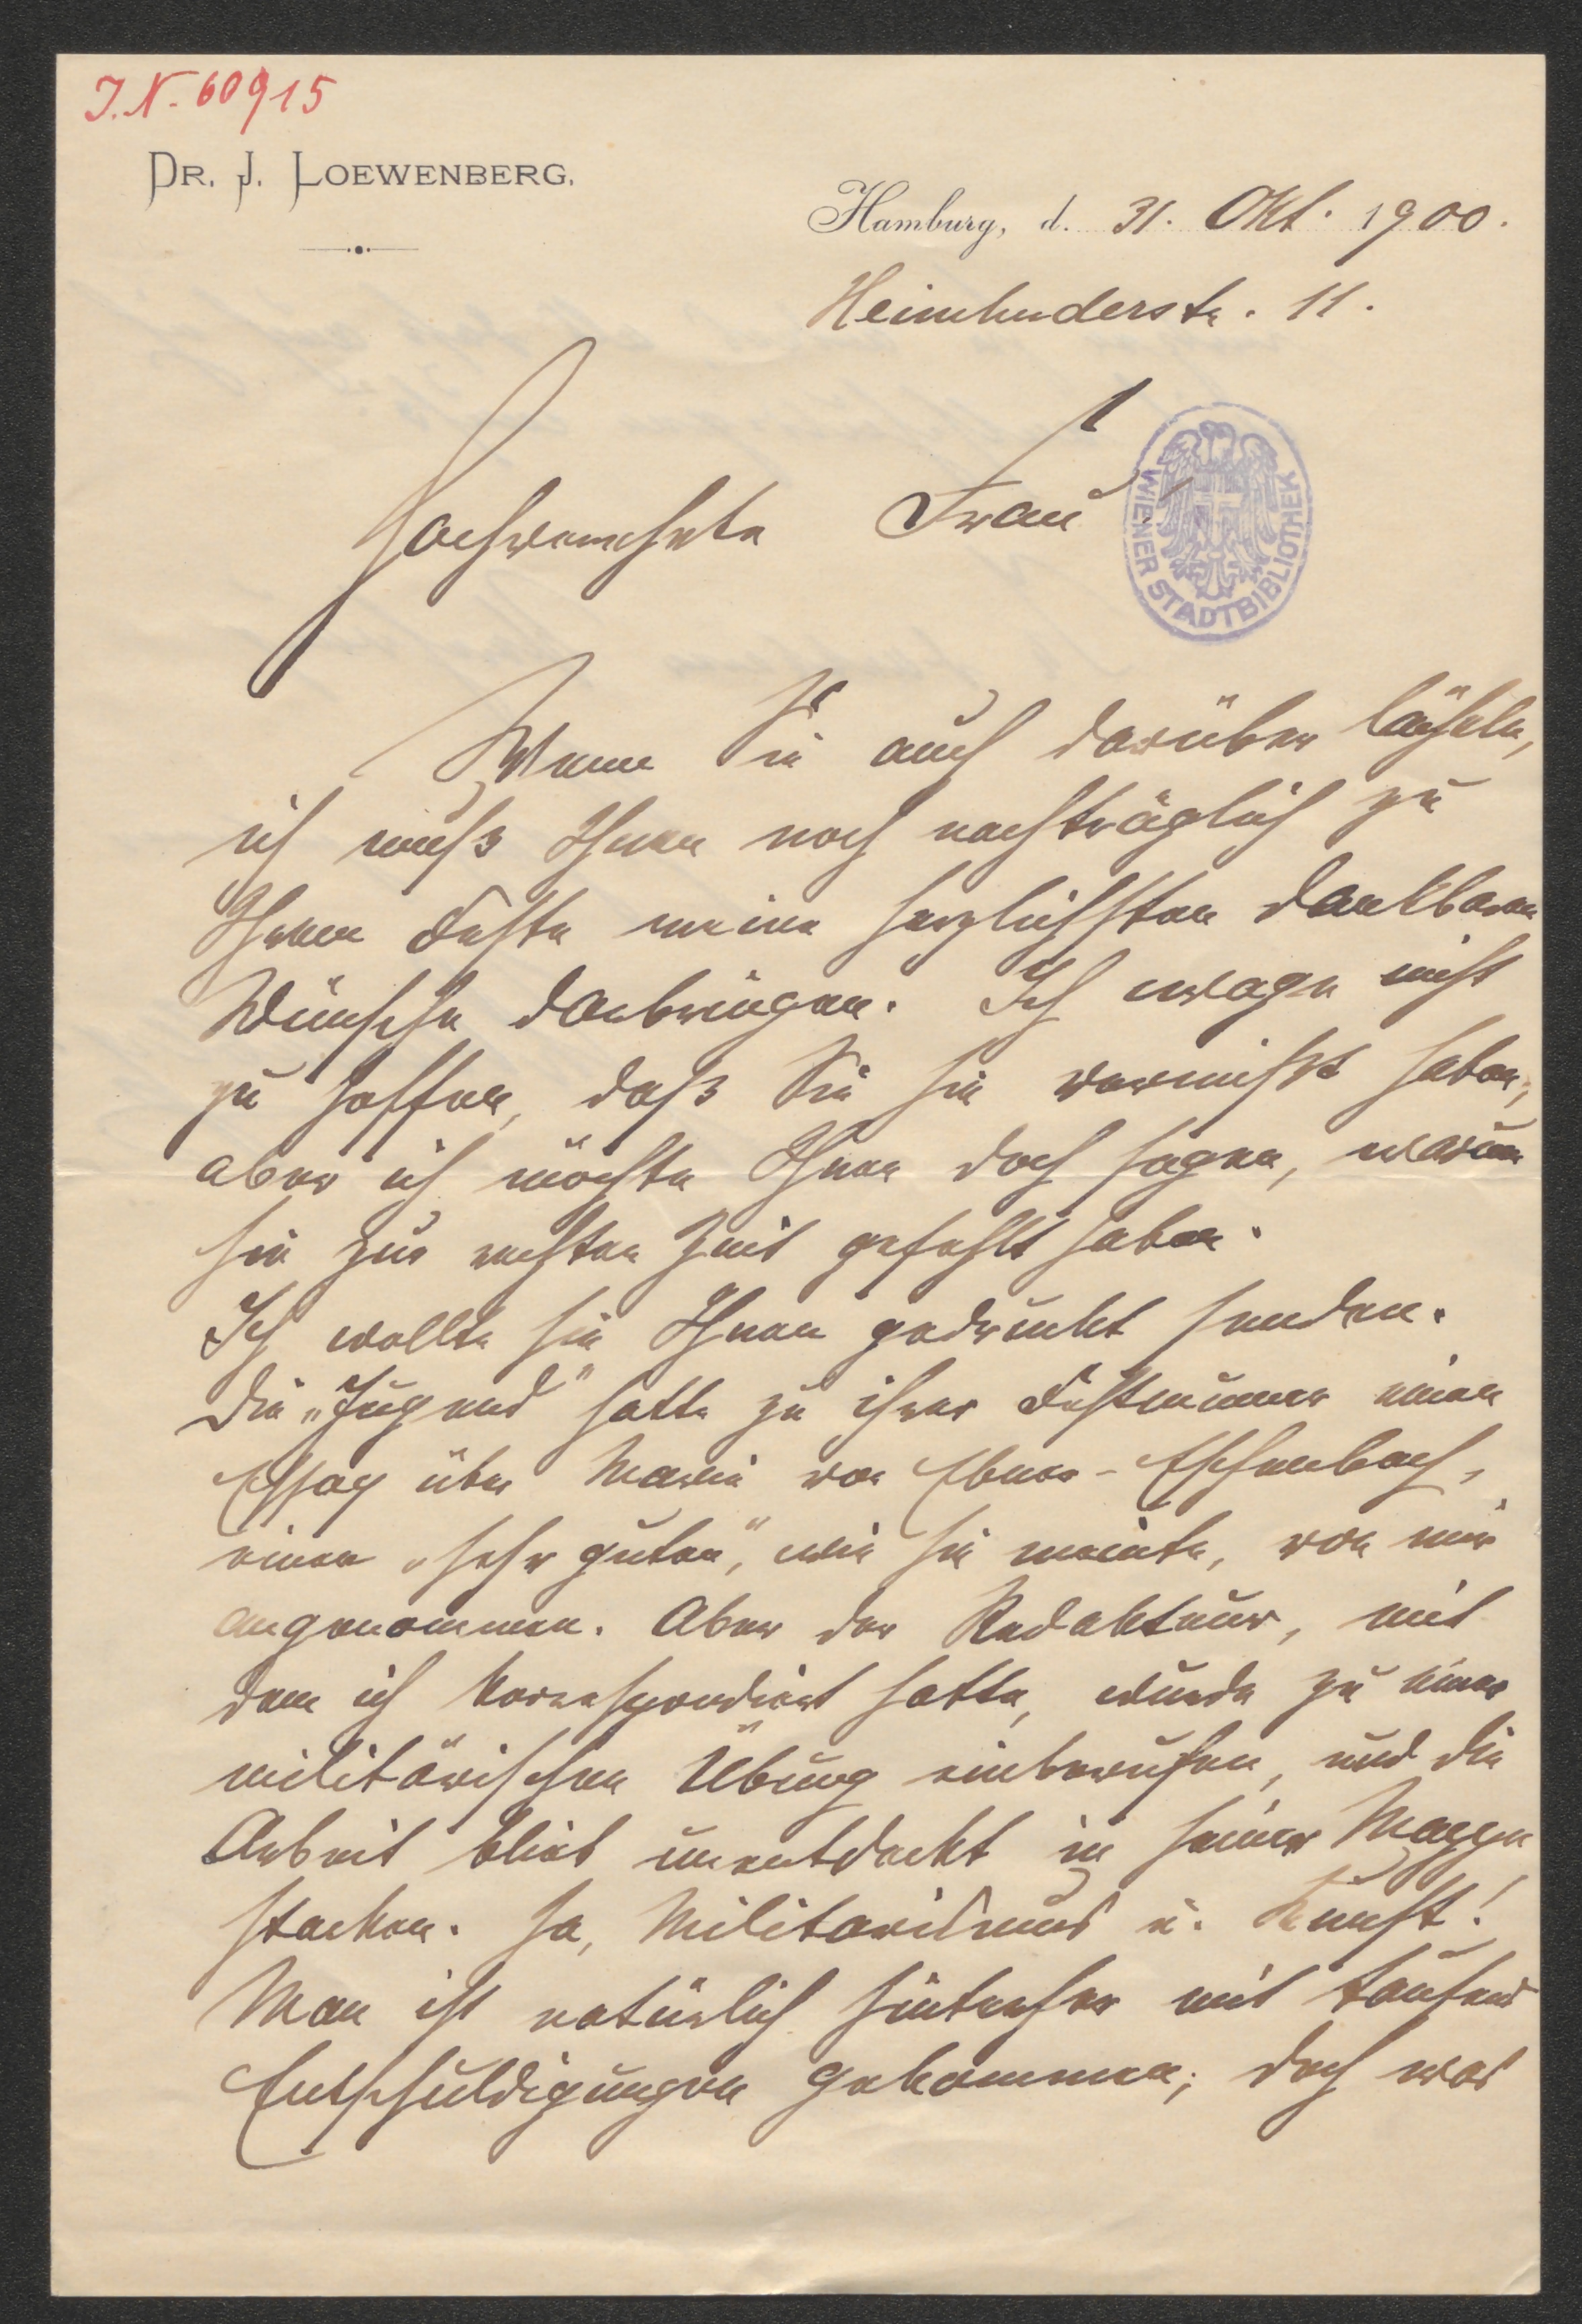 J.N. 60915
DR. J. LOEWENBERG.
Hamburg, d. 31. Okt. 1900.
Heimhuderstr. 11.
Hochverehrte Frau
WIENER STADTBIBLIOTHEK
Wenn Sie auch darüber lächeln,
ich muß Ihnen noch nachträglich zu
Ihrem Feste meine herzlichsten dankbaren
Wünsche darbringen. Ich wage nicht
zu hoffen, daß Sie sie vermißt haben,
aber ich möchte Ihnen doch sagen, warum
sie zur rechten Zeit gefehlt haben.
Ich wollte sie Ihnen gedruckt senden.
Die „Jugend" hatte zu ihrer Festnummer einen
Essay über Marie von Ebner-Eschenbach,
einen „sehr guten", wie sie meinte, von mir
angenommen. Aber der Redakteur, mit
dem ich korrespondiert hatte, wurde zu einer
militärischen Übung einberufen, und die
Arbeit blieb unentdeckt in seiner Mappe
stecken. Ja, Militarismus u. Kunst!
Man ist natürlich hinterher mit tausend
Entschuldigungen gekommen; doch was